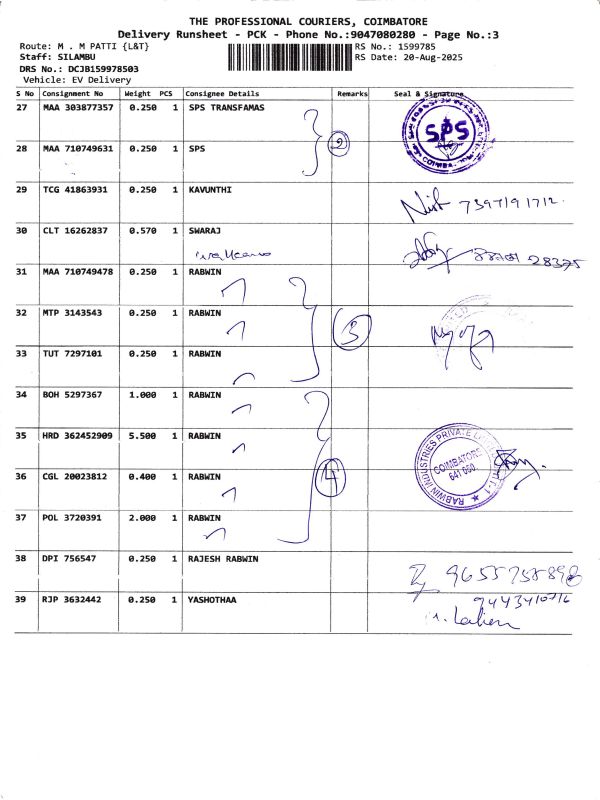 THE PROFESSIONAL COURIERS, COIMBATORE
Delivery Runsheet - PCK - Phone No.:9047080280 - Page No.:3
Route: M . M PATTI {L&T} RS No.: 1599785
Staff: SILAMBU RS Date: 20-Aug-2025
DRS No.: DCJB159978503
Vehicle: EV Delivery
S No Consignment No Weight PCS Consignee Details Remarks Seal & Signature
27 MAA 303877357 0.250 1 SPS TRANSFAMAS
2 SPS COIMBA
28 MAA 710749631 0.250 1 SPS
29 TCG 41863931 0.250 1 KAVUNTHI
30 CLT 16262837 0.570 1 SWARAJ
28375
31 MAA 710749478 0.250 1 RABWIN
32 MTP 3143543 0.250 1 RABWIN
3
33 TUT 7297101 0.250 1 RABWIN
34 BOH 5297367 1.000 1 RABWIN
35 HRD 362452909 5.500 1 RABWIN
RABWIN INDUSTRIES PRIVATE COIMBATORE 641 050.
36 CGL 20023812 0.400 1 RABWIN
4
37 POL 3720391 2.000 1 RABWIN
38 DPI 756547 0.250 1 RAJESH RABWIN
39 RJP 3632442 0.250 1 YASHOTHAA